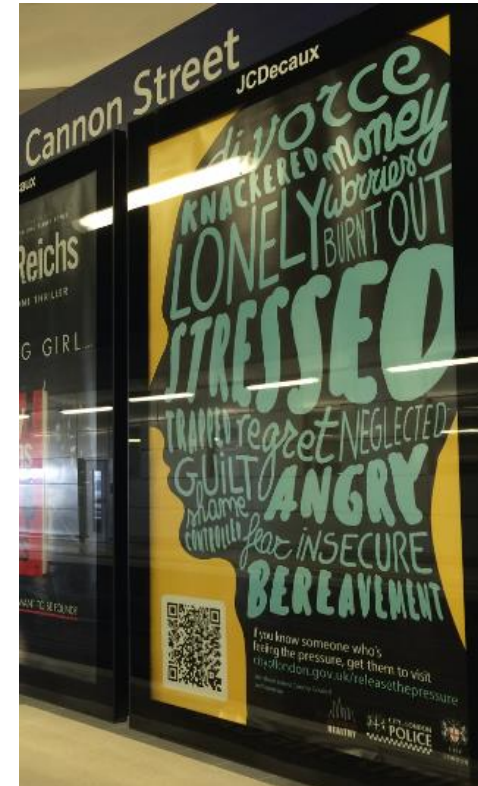 Cannon Street
JCDecaux
aux
Reichs
THRILLER
G GIRL...
WANT TO BE FOUND?
divorce
KNACKERED money
LONELY worries
BURNT OUT
STRESSED
TRAPPED regret NEGLECTED
GUILT
shame ANGRY
CONTROLLED fear INSECURE
BEREAVEMENT
If you know someone who's
feeling the pressure, get them to visit
cityoflondon.gov.uk/releasethepressure
HEALTHY
CITY LONDON
POLICE
CITY
LONDON